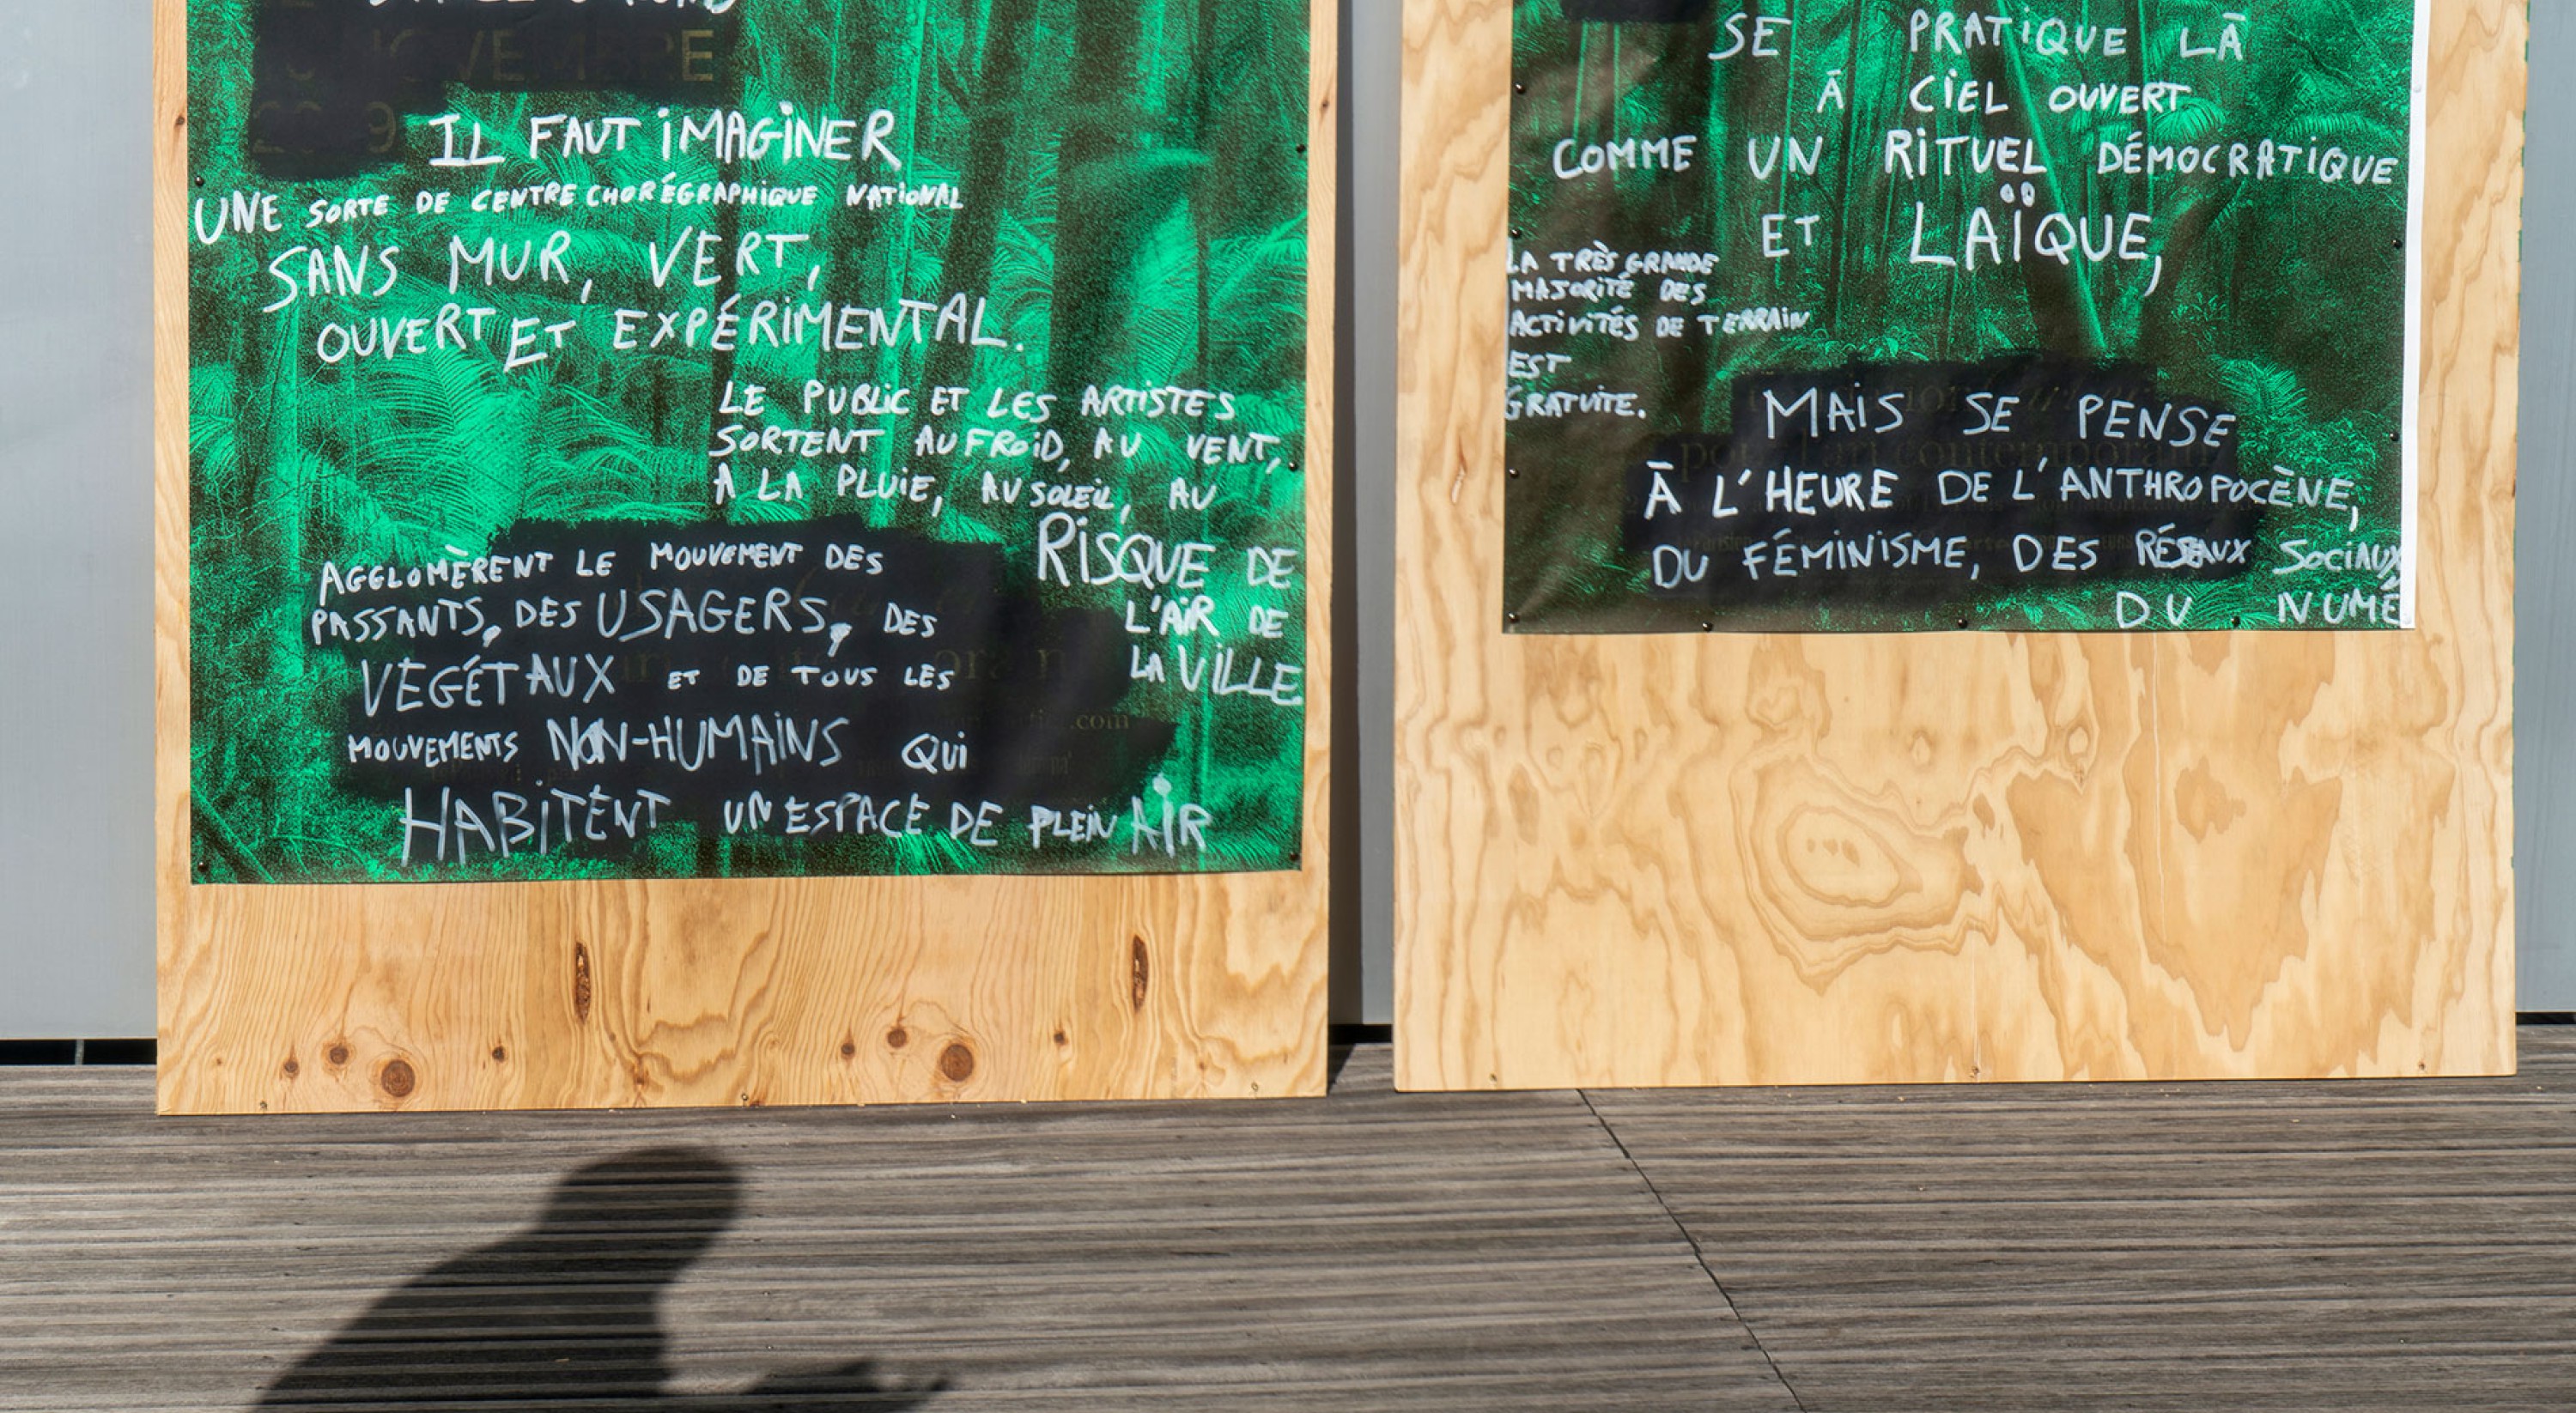 NOVEMBRE
IL FAUT IMAGINER
UNE SORTE DE CENTRE CHORÉGRAPHIQUE NATIONAL
SANS MUR, VERT,
OUVERT ET EXPÉRIMENTAL.
LE PUBLIC ET LES ARTISTES
SORTENT AU FROID, AU VENT,
A LA PLUIE, AU SOLEIL, AU
RISQUE DE
L'AIR DE
LA VILLE
AGGLOMÈRENT LE MOUVEMENT DES
PASSANTS, DES USAGERS, DES
VEGÉTAUX ET DE TOUS LES
MOUVEMENTS NON-HUMAINS QUI
HABITENT UN ESPACE DE PLEIN AIR
.com
SE PRATIQUE LÀ
À CIEL OUVERT
COMME UN RITUEL DÉMOCRATIQUE
ET LAÏQUE,
LA TRÈS GRANDE
MAJORITÉ DES
ACTIVITÉS DE TERRAIN
EST
GRATUITE.
MAIS SE PENSE
pour l'art contemporain
À L'HEURE DE L'ANTHROPOCÈNE,
DU FÉMINISME, DES RÉSEAUX SOCIAUX,
DU NUMÉ